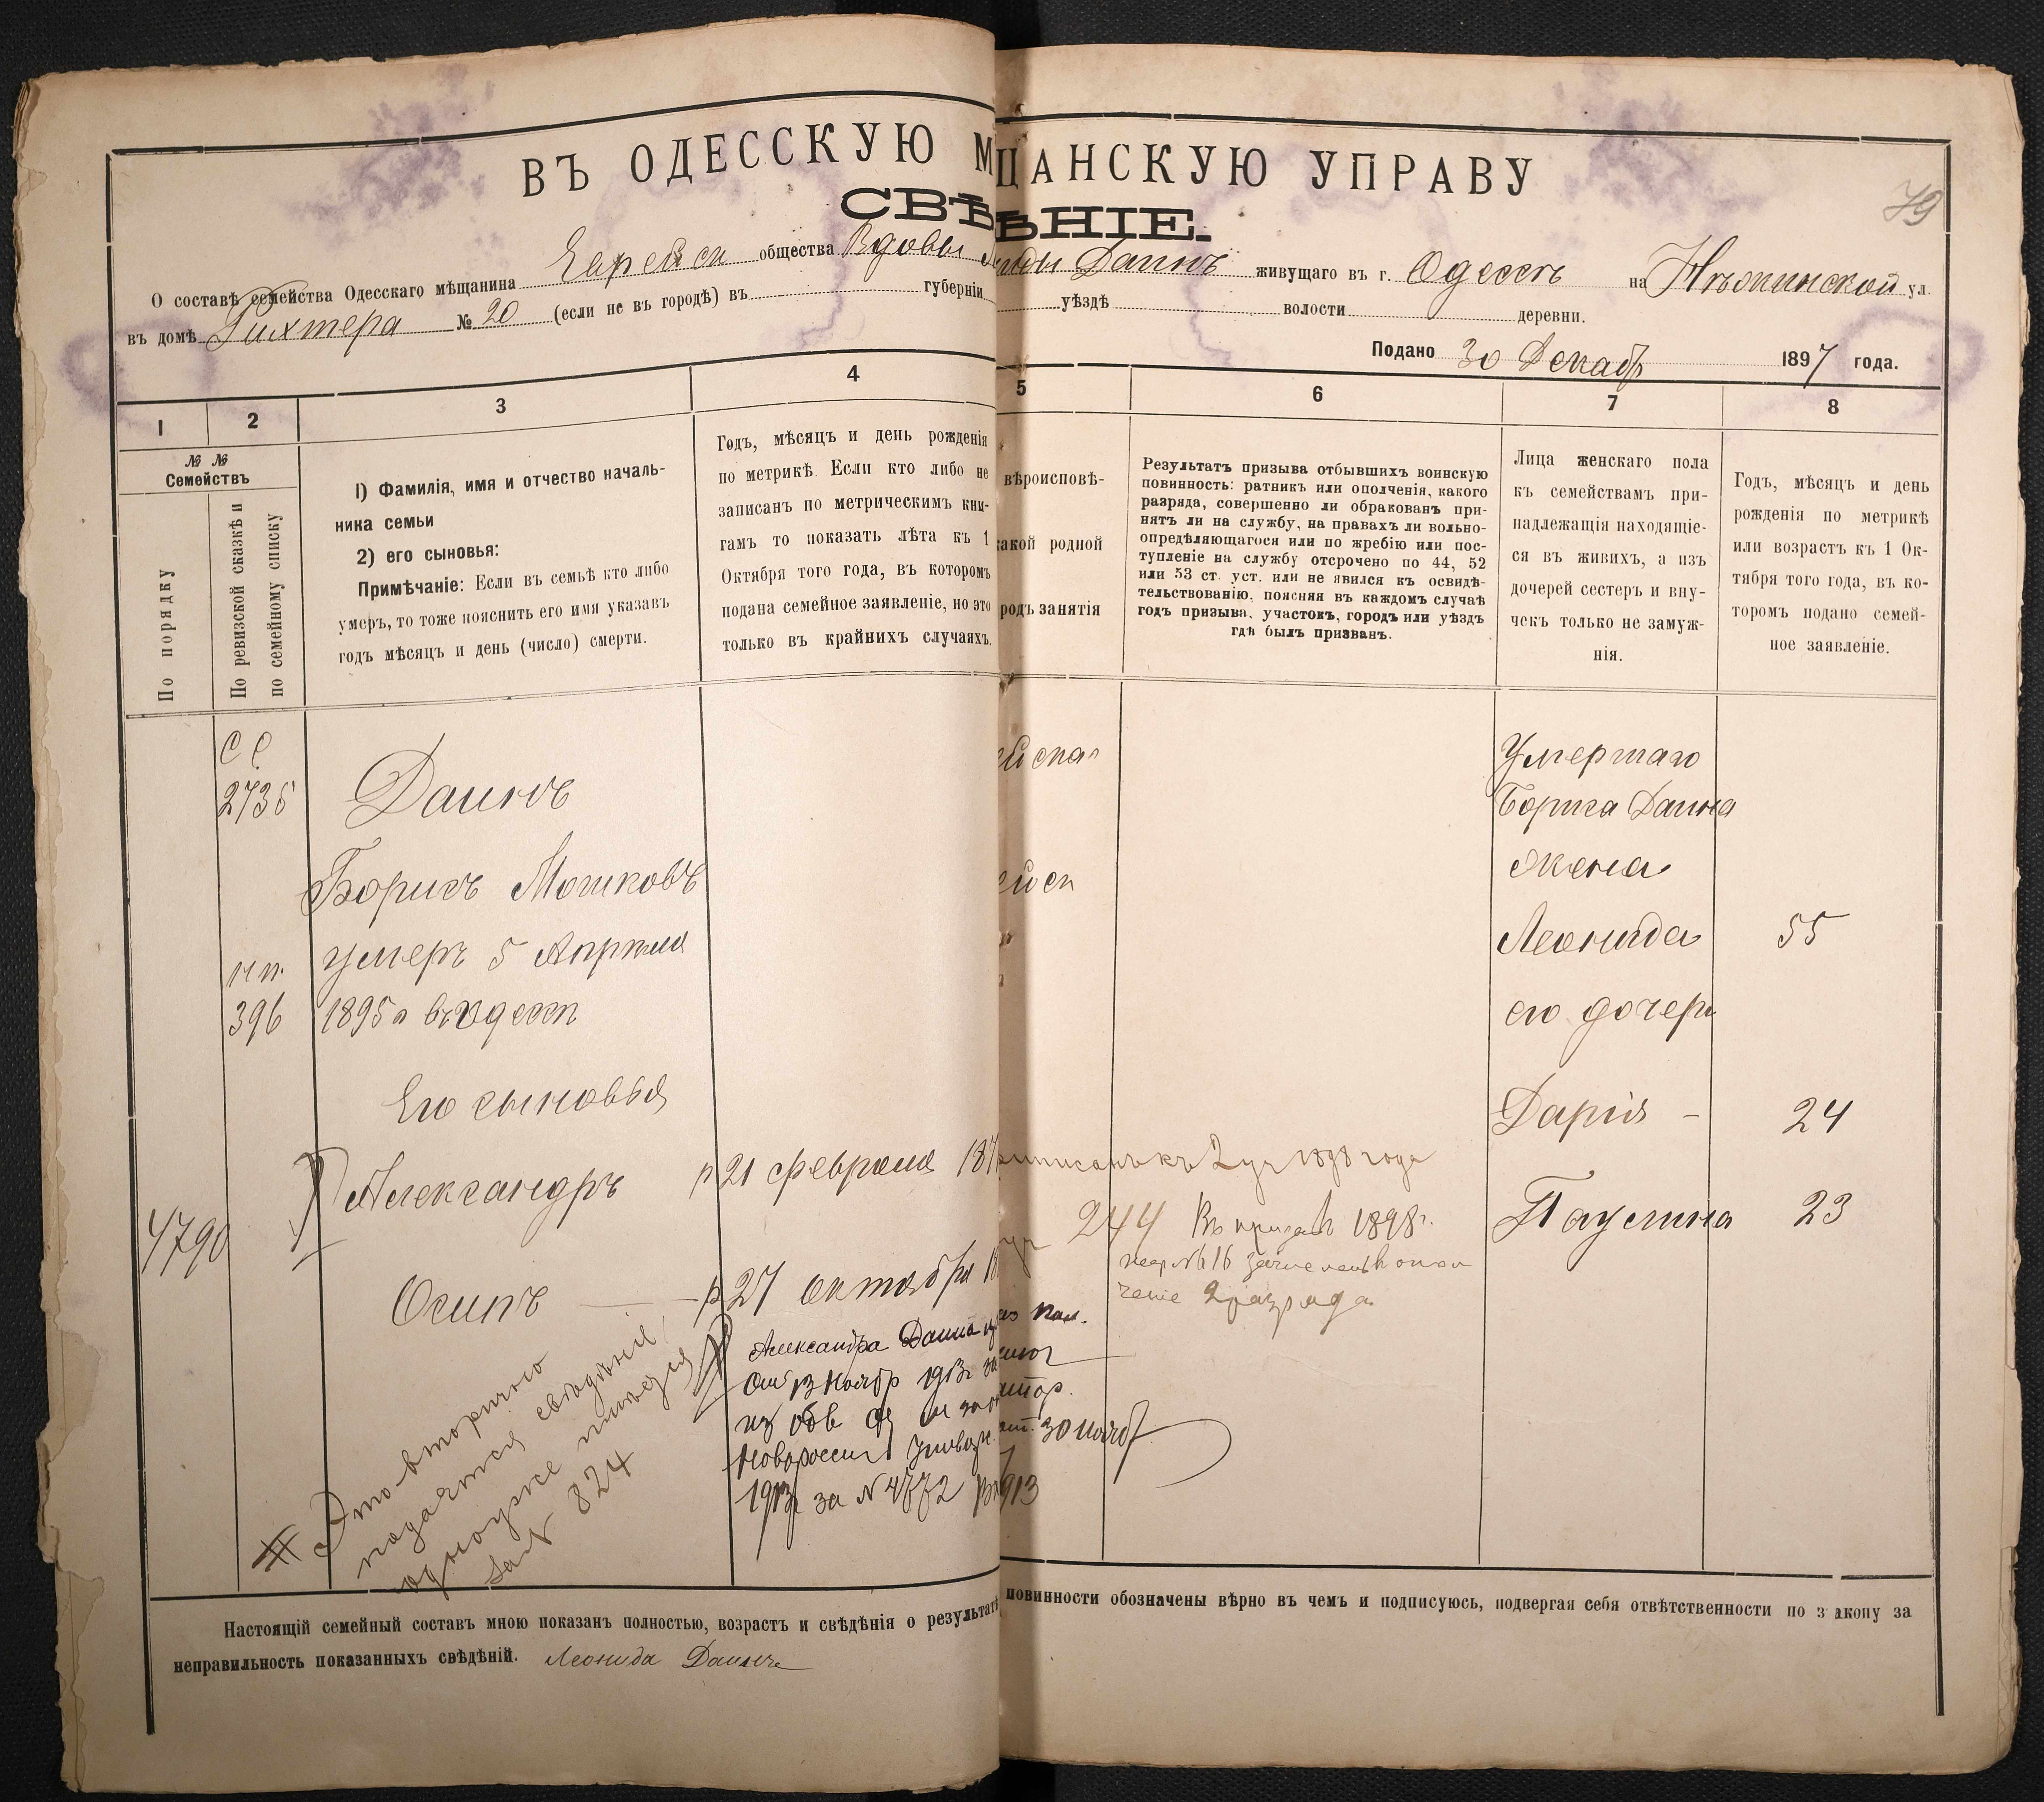 79
ВЪ ОДЕССКУЮ МЩАНСКУЮ УПРАВУ
СВѢѢНІЕ.
О составѣ семейства Одесскаго мѣщанина Еврейск общества Вдовы Даинъ живущаго въ г. Одессѣ на Нѣжинской ул.
въ домѣ Рихтера № 20 (если не въ городѣ) въ губерніи уѣздѣ волости деревни.
Подано 30 Декабр 1897 года.
1 2 3 4 5 6 7 8
№ № Семействъ
По порядку
По ревизской сказкѣ и по семейному списку
1) Фамилія, имя и отчество началь-
ника семьи
2) его сыновья:
Примѣчаніе: Если въ семьѣ кто либо
умеръ, то тоже пояснить его имя указавъ
годъ мѣсяцъ и день (число) смерти.
Годъ, мѣсяцъ и день рожденія
по метрикѣ. Если кто либо не
записанъ по метрическимъ кни-
гамъ то показать лѣта къ 1
Октября того года, въ которомъ
подана семейное заявленіе, но это
только въ крайнихъ случаяхъ.
вѣроисповѣ-
акой родной
родъ занятія
Результатъ призыва отбывшихъ воинскую
повинность: ратникъ или ополченія, какого
разряда, совершенно ли обракованъ при-
нятъ ли на службу, на правахъ ли вольно-
опредѣляющагося или по жребію или пос-
тупленіе на службу отсрочено по 44, 52
или 53 ст. уст. или не явился къ освидѣ-
тельствованію, поясняя въ каждомъ случаѣ
годъ призыва, участокъ, городъ или уѣздъ
гдѣ былъ призванъ.
Лица женскаго пола
къ семействамъ при-
надлежащія находящіе-
ся въ живихъ, а изъ
дочерей сестеръ и вну-
чекъ только не замуж-
нія.
Годъ, мѣсяцъ и день
рожденія по метрикѣ
или возрастъ къ 1 Ок-
тября того года, въ ко-
торомъ подано семей-
ное заявленіе.
СС
2735
Даинъ
Борисъ Мошковъ
умеръ 5 Апрѣля
нп.
396
1895 г въ Одессѣ
Его сыновья
Александръ р 21 февраля 187
4790
Осипъ р 27 октября 18
Александра Даина
из об
Новоросси
1913 за № 4772
30 нояб
913
Это вторично
подается свѣдѣніе
однор же имѣется
за № 824
2 уч 1898 года
244 Въ призывъ 1898 г.
жер № 616 зачисленъ в опол
чение 2 разряда
Умершаго
Бориса Даина
жена
Леонида 55
его дочери
Дарія - 24
Паулина 23
Настоящій семейный составъ мною показанъ полностью, возрастъ и свѣдѣнія о результатѣ повинности обозначены вѣрно въ чемъ и подписуюсь, подвергая себя отвѣтственности по закону за
неправильность показанныхъ свѣдѣній. Леонида Даинъ